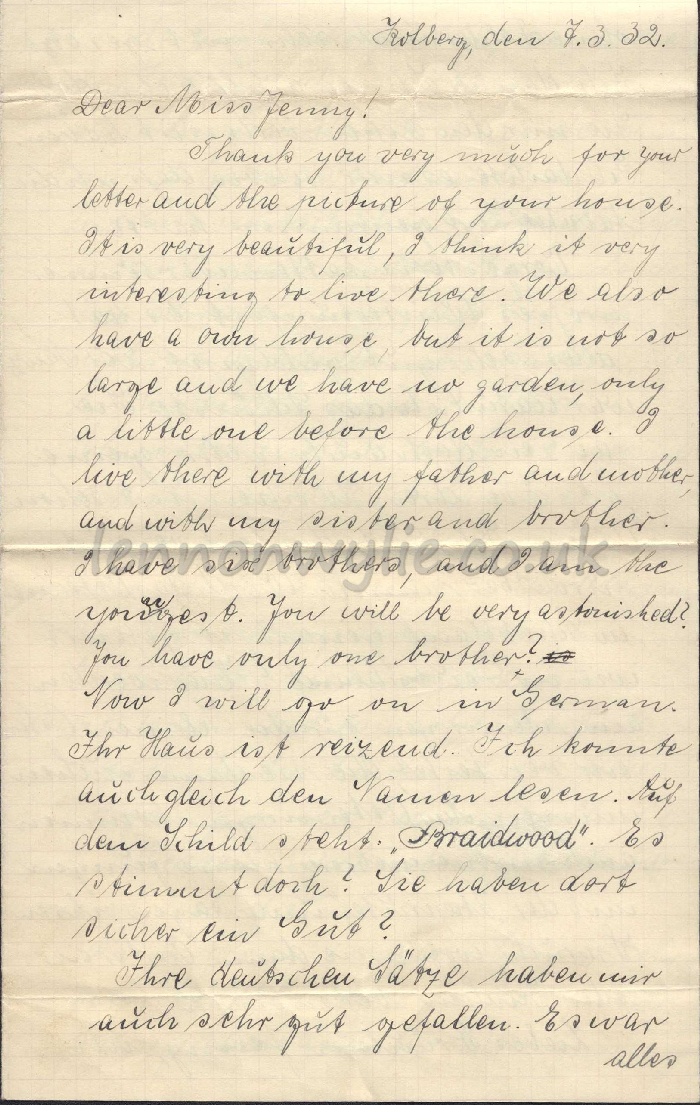 Kolberg, den 7.3.32.
Dear Miss Jenny!
Thank you very much for your
letter and the picture of your house.
It is very beautiful, I think it very
interesting to live there. We also
have a own house, but it is not so
large and we have no garden, only
a little one before the house. I
live there with my father and mother,
and with my sister and brother.
I have six brothers, and I am the
youngest. You will be very astonished?
You have only one brother?
Now I will go on in German.
Ihr Haus ist reizend. Ich konnte
auch gleich den Namen lesen. Auf
dem Schild steht. „Braidwood“. Es
stimmt doch? Sie haben dort
sicher ein Gut?
Ihre deutschen Sätze haben mir
auch sehr gut gefallen. Es war
alles
lennonwylie.co.uk